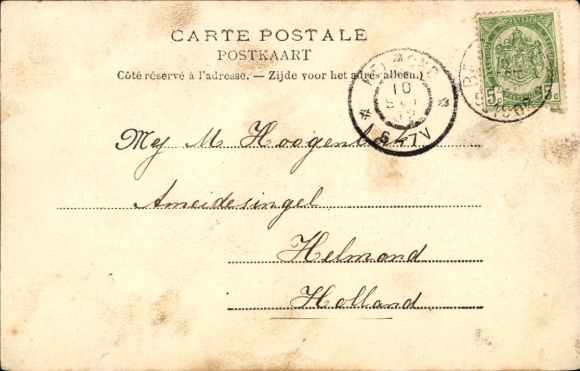 CARTE POSTALE
POSTKAART
Côté réservé à l'adresse. — Zijde voor het adres alleen.)
HELMOND
10
6-7V
POSTES
5 c
Mej M. Hoogen
Ameidesingel
Helmond
Holland